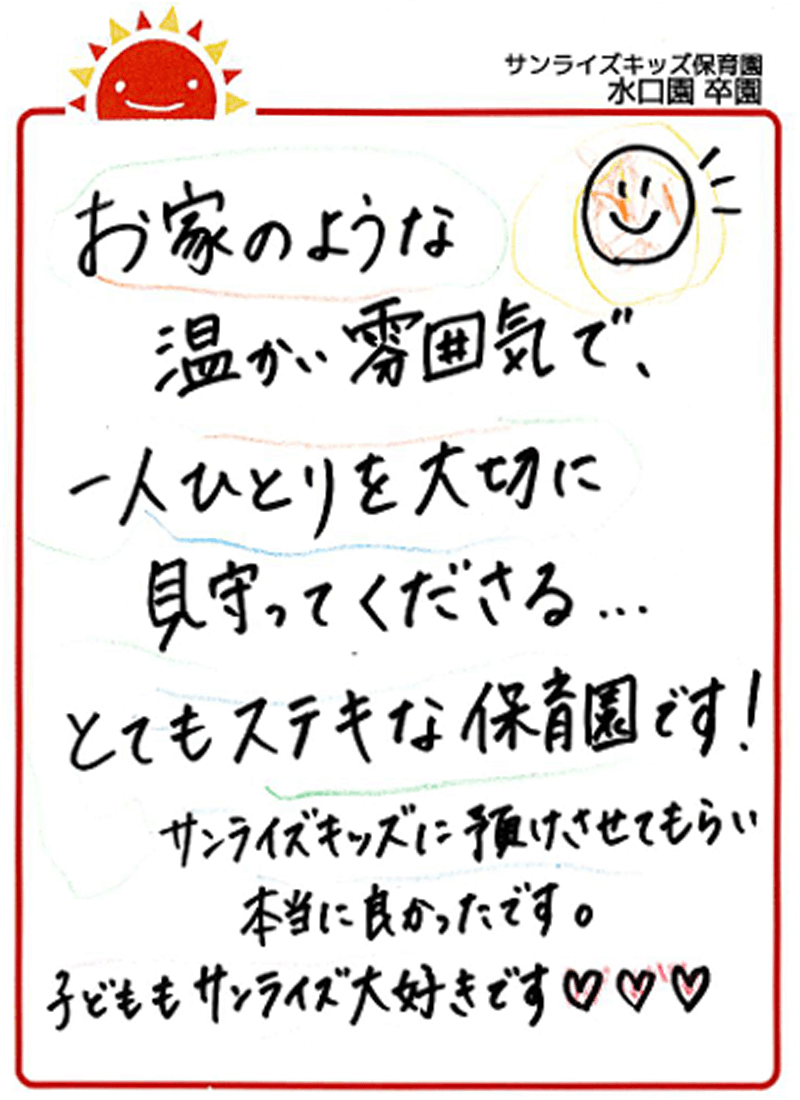 サンライズキッズ保育園
水口園 卒園
お家のような
温かい雰囲気で、
一人ひとりを大切に
見守ってくださる…
とてもステキな保育園です!
サンライズキッズに預けさせてもらい
本当に良かったです。
子どももサンライズ大好きです♡♡♡